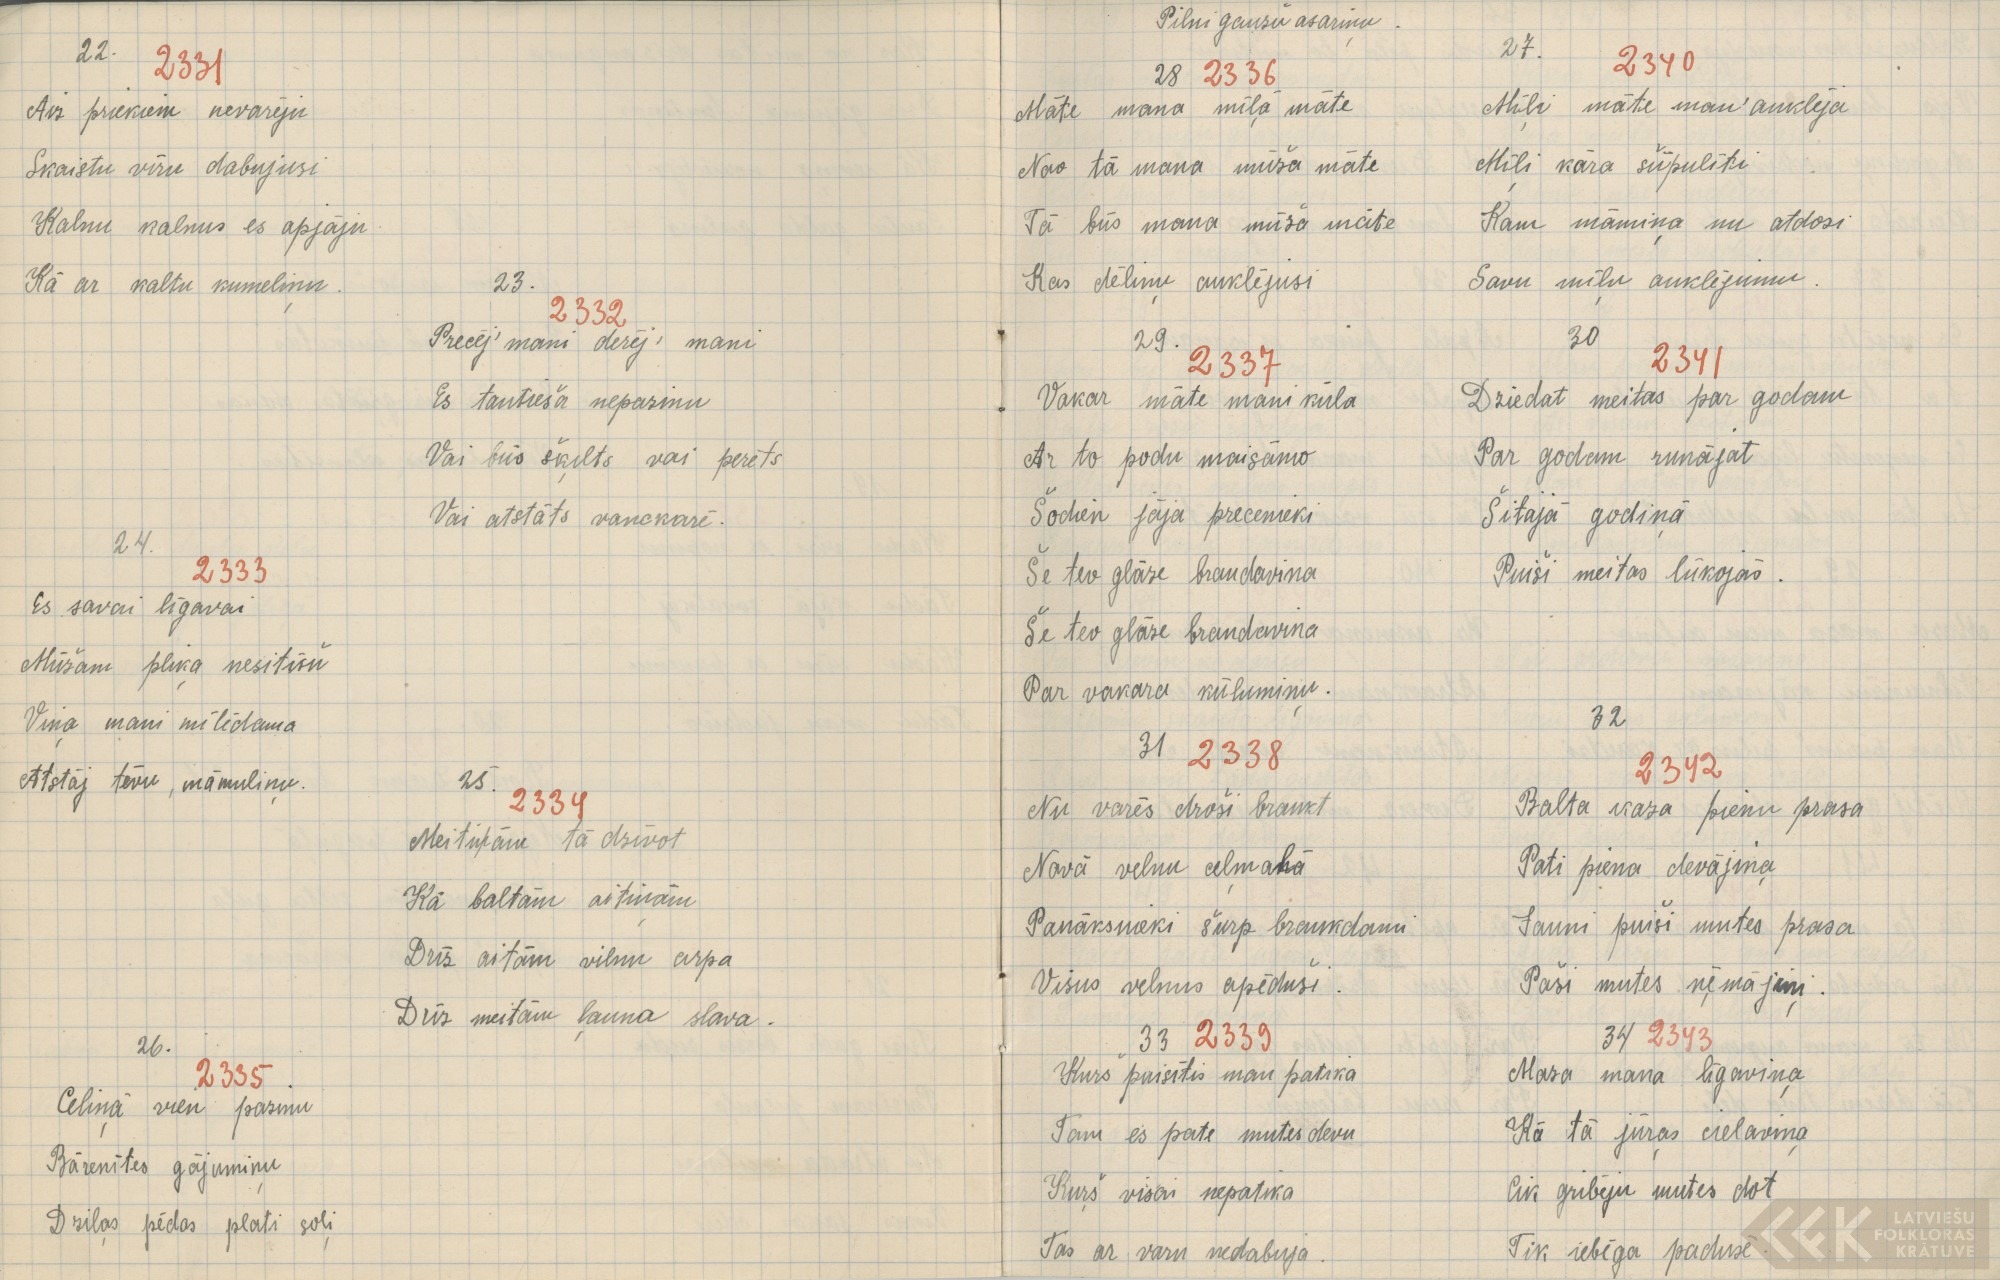 22.
2331
Aiz priekiem nevarēju
Skaistu vīru dabujusi
Kalnu kalnus es apjāju
Kā ar kaltu kumeliņu.
23.
2332
Precēj' mani derēj' mani
Es tautieša nepazinu
Vai būs šķelts vai perēts
Vai atstāts vanckarē.
24.
2333
Es savai līgavai
Mūžam pliķa nesitīšu
Viņa mani mīlēdama
Atstāj tēvu, māmuliņu.
25.
2334
Meitiņām tā dzīvot
Kā baltām aitiņām
Drīz aitām vilnu cirpa
Drīz meitām ļauna slava.
26.
2335.
Celiņā vien pazinu
Bārenītes gājumiņu
Dziļas pēdas plati soļi
Pilni gauzu asariņu.
28 2336
Māte mana mīļā māte
Nav tā mana mūža māte
Tā būs mana mūža māte
Kas dēliņu auklējusi
29.
2337
Vakar māte mani kūla
Ar to podu maisāmo
Šodien jāja precenieki
Še tev glāze brandavīna
Še tev glāze brandavīna
Par vakara kūlumiņu.
31 2338
Nu varēs droši braukt
Navā velnu ceļmalā
Panāksnieki šurp braukdami
Visus velnus apēduši.
33 2339
Kurš puisītis man patika
Tam es pate mutes devu
Kuŗš visai nepatika
Tas ar varu nedabuja.
27.
2340
Mīļi māte man' auklēja
Mīļi kāra šūpulīti
Kam māmiņa nu atdosi
Savu mīļu auklējumu.
30
2341
Dziedat meitas par godam
Par godam runājat
Šitajā godiņā
Puiši meitas lūkojās.
32
2342
Balta kaza pienu prasa
Pati piena devājiņa
Jauni puiši mutes prasa
Paši mutes ņēmājiņi.
34 2343
Maza mana līgaviņa
Kā tā jūŗas cielaviņa
Cik gribēju mutes dot
Tik iebēga padusē.
LATVIEŠU
FOLKLORAS
KRĀTUVE